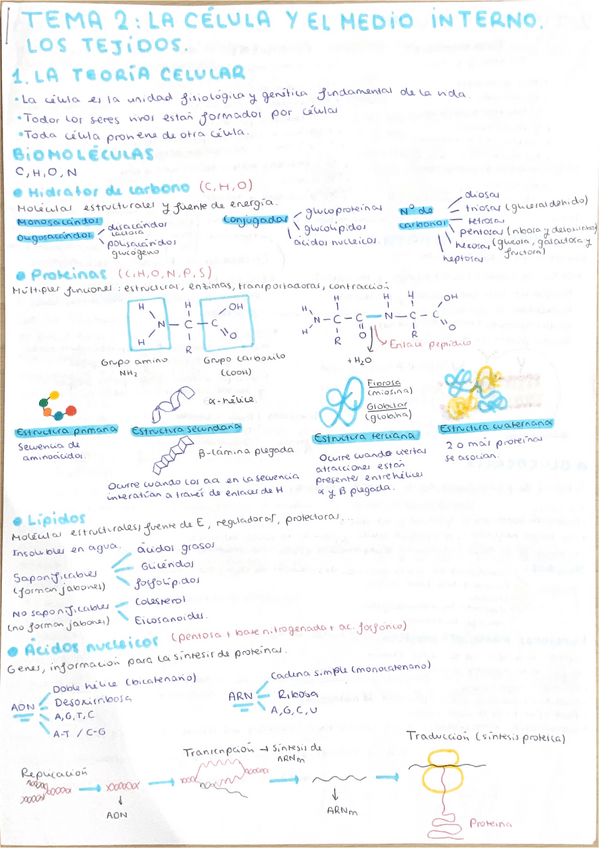 TEMA 2: LA CÉLULA Y EL MEDIO INTERNO.
LOS TEJIDOS.
1. LA TEORÍA CELULAR
• La célula es la unidad fisiológica y genética fundamental de la vida.
• Todos los seres vivos están formados por células
• Toda célula proviene de otra célula.
BIOMOLÉCULAS
C, H, O, N
• Hidratos de carbono (C, H, O)
Moléculas estructurales y fuente de energía.
Monosacáridos
Oligosacáridos
disacáridos
lactosa
polisacáridos
glucógeno
Conjugados
glucoproteínas
glucolípidos
ácidos nucleicos
Nº de
carbonos
diosas
triosas (gliceraldehído)
tetrosas
pentosas (ribosa y desoxirribosa)
hexosas (glucosa, galactosa y
fructosa)
heptosas
• Proteínas (C, H, O, N, P, S)
Múltiples funciones: estructuras, enzimas, transportadoras, contracción
H
H
N
H
C
R
C
OH
O
Grupo amino
NH2
Grupo carboxilo
(COOH)
H
H
N
H
C
R
C
O
N
H
C
H
R
C
OH
O
Enlace peptídico
+ H2O
Estructura primaria
Secuencia de
aminoácidos.
α-hélice
Estructura secundaria
β-lámina plegada
Ocurre cuando los aa en la secuencia
interactúan a través de enlaces de H
Fibrosa
(miosina)
Globular
(globina)
Estructura terciaria
Ocurre cuando ciertas
atracciones están
presentes entre hélices
α y β plegada.
Estructura cuaternaria
2 o más proteínas
se asocian.
• Lípidos
Moléculas estructurales, fuente de E, reguladoras, protectoras,...
Insolubles en agua.
Saponificables
(forman jabones)
ácidos grasos
Glicéridos
fosfolípidos
No saponificables
(no forman jabones)
Colesterol
Eicosanoides.
• Ácidos nucleicos (pentosa + base nitrogenada + ac. fosfórico)
Genes, información para la síntesis de proteínas.
ADN
Doble hélice (bicatenario)
Desoxirribosa
A, G, T, C
A-T / C-G
ARN
Cadena simple (monocatenario)
Ribosa
A, G, C, U
Replicación
ADN
Transcripción → Síntesis de
ARNm
ARNm
Traducción (síntesis proteica)
Proteína